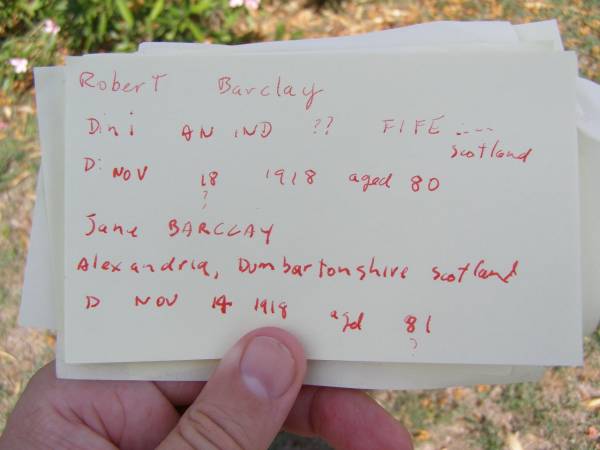 Robert Barclay
Dini AN IND ?? FIFE ....
Scotland
D: NOV 18 1918 aged 80
?
Jane BARCLAY
Alexandria, Dumbartonshire Scotland
D NOV 14 1918 aged 81
?